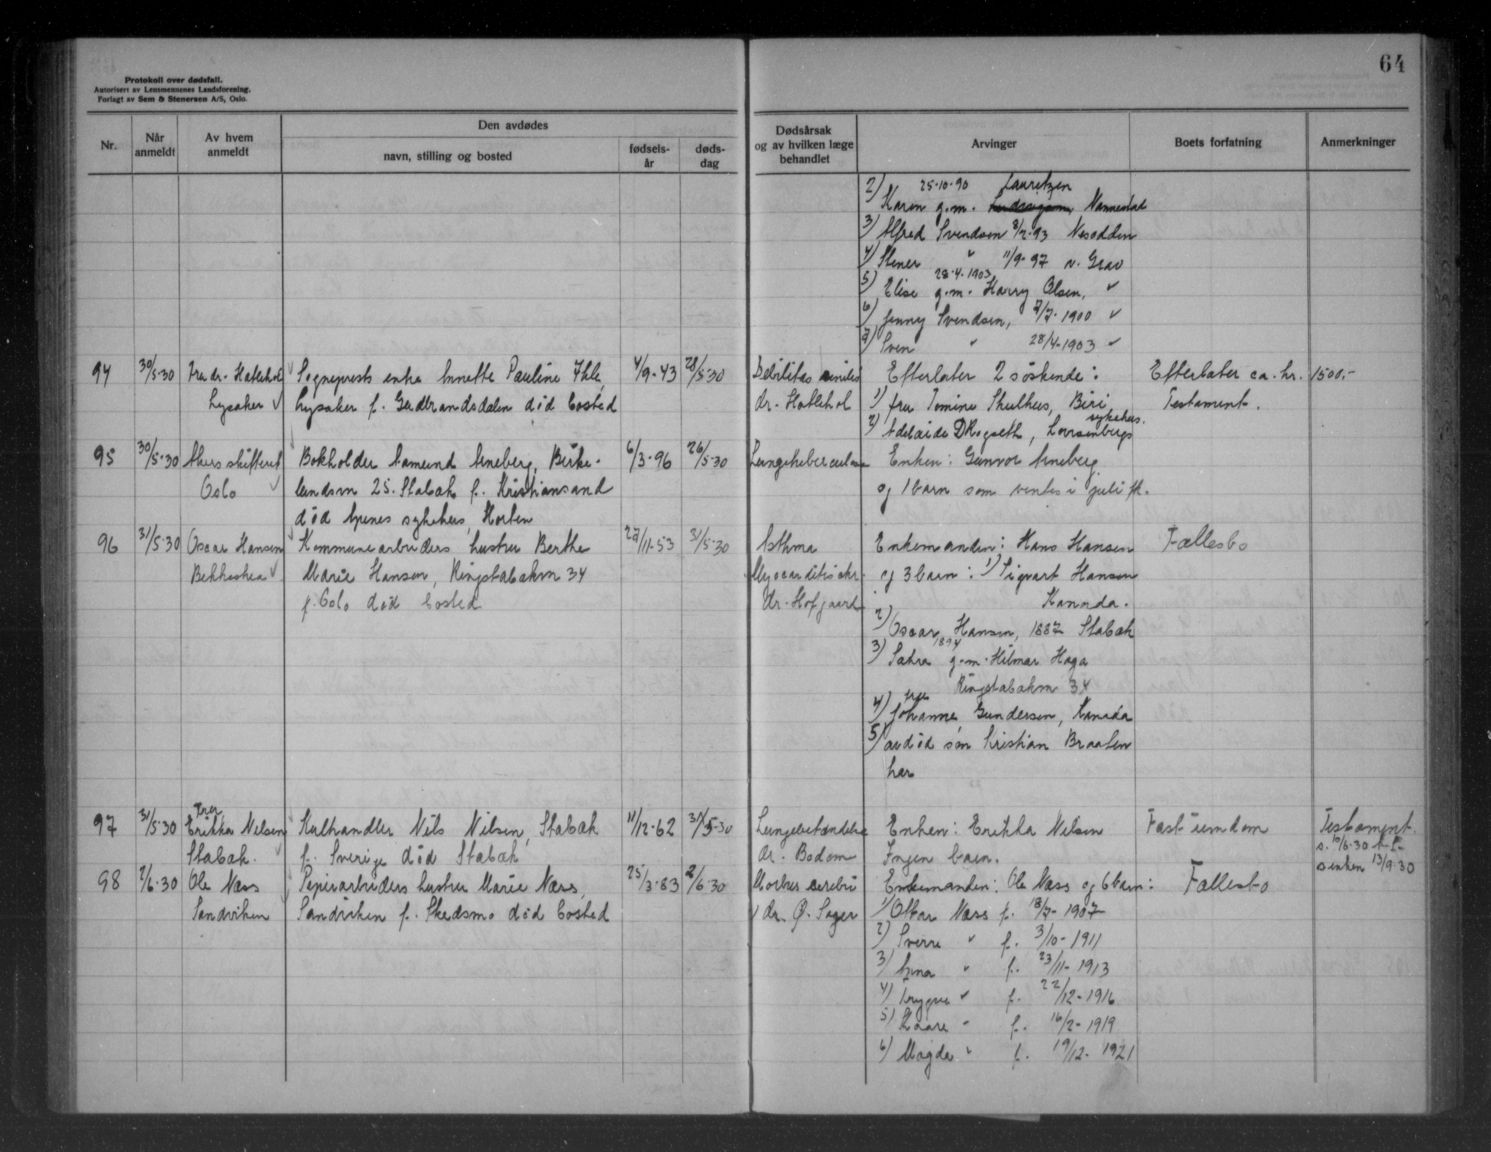 Protokoll over dødsfall.
Autorisert av Lensmennenes Landsforening.
Forlagt av Sem & Stenersen A/S, Oslo.
64
Nr.
Når anmeldt
Av hvem anmeldt
Den avdødes
navn, stilling og bosted
fødsels-år
døds-dag
Dødsårsak og av hvilken læge behandlet
Arvinger
Boets forfatning
Anmerkninger
2) 25-10-90 Lauritzen
Karen g.m. Nannestad
3) Alfred Svendsen 3/2-93 Nesodden
4) Stener " 11/9-97 v. Grav
5) 28-4-1903
Elise g.m. Harry Olsen, "
6) Jenny Svendsen, 7/7-1900 "
7) Sven " 28/4-1903 "
94 30/5-30 Fra dr. Hatlehol Sogneprests enke Annette Pauline Ihle, 4/9-43 28/5-30 Debilitas senilis Efterlater 2 søskende: Efterlater ca. kr. 1500,-
Lysaker Lysaker f. Gudbrandsdalen død bosted dr. Hatlehol 1) fru Tomine Skulhus, Biri Testament.
2) Adelaide D Rogseth, Lovisenbergs sykehus.
95 30/5-30 Akers skifterett Bokholder Aamund Arneberg, Birke- 6/3-96 26/5-30 Lungetuberculose Enken: Gunvor Arneberg
Oslo lundsvn 25. Stabæk f. Kristiansand og 1 barn som ventes i juli
død Apenes sykehus, Horten
96 31/5-30 Oscar Hansen Kommunearbeiders hustru Berthe 22/11-53 31/5-30 Asthma Enkemanden: Hans Hansen Fællesbo
Bekkestua Marie Hansen, Ringstabækvn 34 Myocarditis chr. og 3 barn: 1) Sigvart Hansen
f. Oslo død bosted dr. Hofgaard Kannada.
2) Oscar Hansen, 1887 Stabæk
3) 1894 g.m. Hilmar Haga
Ringstabækvn 34
4) fru Johanne Gundersen, Canada
5) avdød søn Kristian Braaten
har
97 31/5-30 Fru Erikka Nilsen Kulhandler Nils Nilsen, Stabæk 11/12-62 31/5-30 Lungebetændelse Enken: Erikka Nilsen Fast eiendom Testament.
Stabæk. f. Sverige død Stabæk dr. Bodom Ingen barn. s. 10/6-30
s enken 13/9-30
98 2/6-30 Ole Næss Papirarbeiders hustru Marie Næss, 25/3-83 2/6-30 Morbus cerebri Enkemanden: Ole Næss og 6 barn: Fællesbo
Sandviken Sandviken f. Skedsmo død bosted dr. Ø. Sager 1) Oskar Næss f. 18/7-1907
2) Sverre " f. 3/10-1911
3) Anna " f. 23/11-1913
4) Trygve " f. 22/12-1916
5) Kaare " f. 16/2-1919
6) Magda " f. 19/12-1921